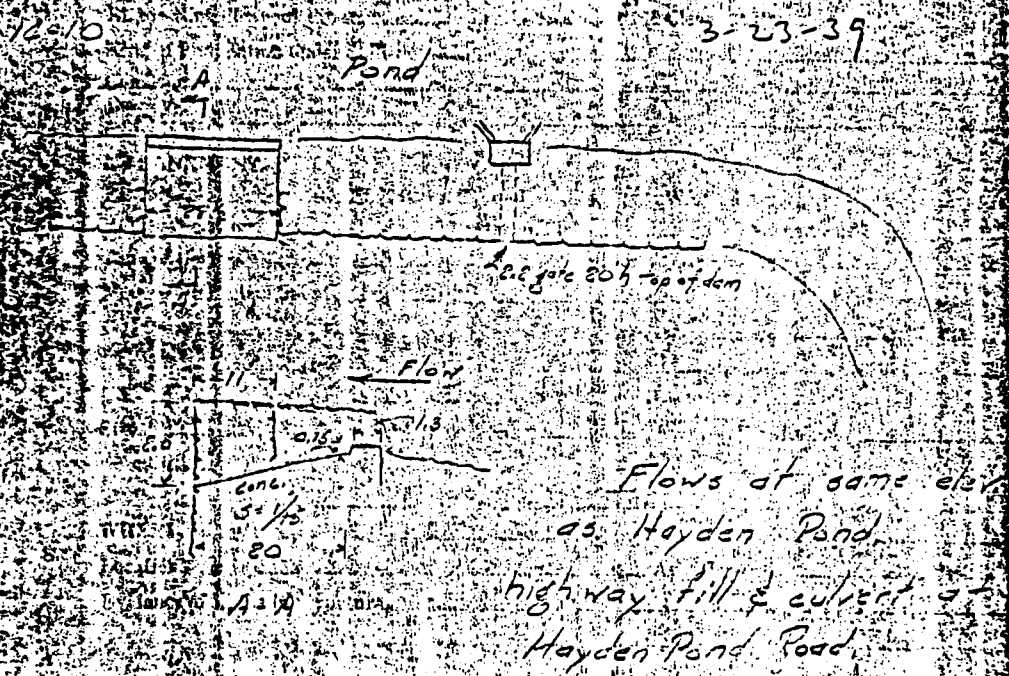 3-23-39
Pond
A
2.2 gate 20 h top of dam
11
Flow
1.3
0.15
conc.
20
Flows at same elev
as Hayden Pond.
highway fill & culvert at
Hayden Pond Road.